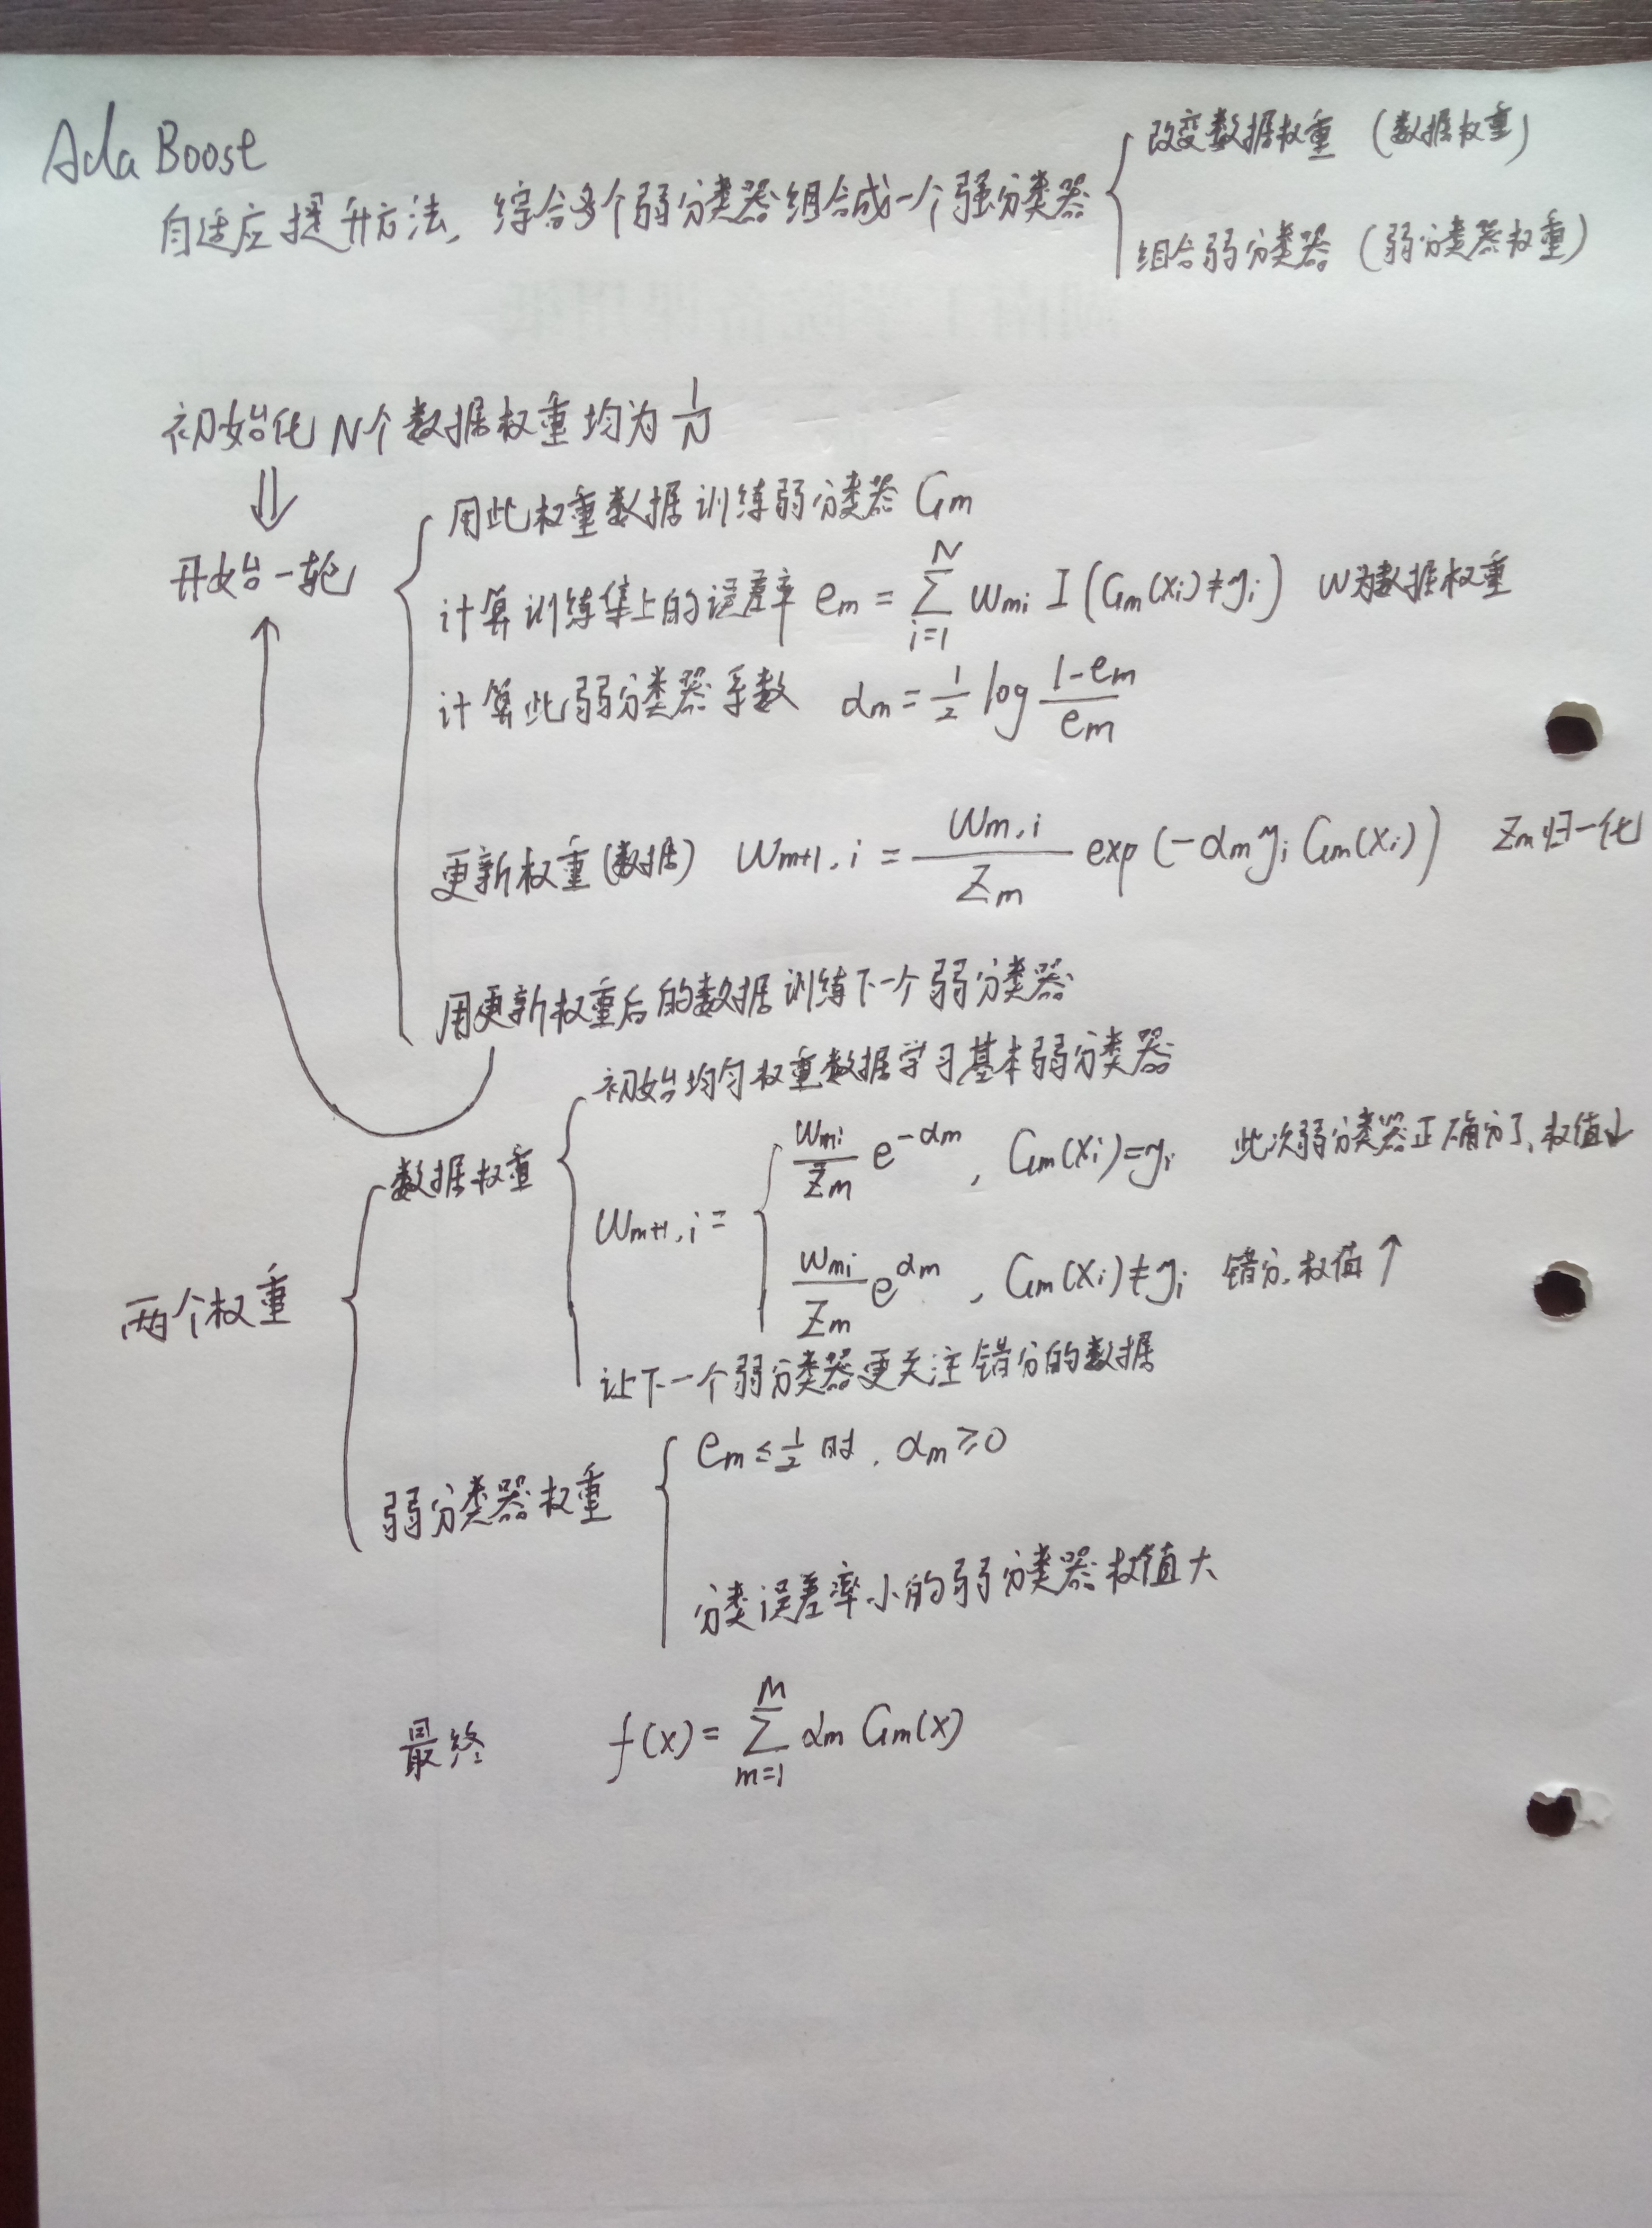 AdaBoost
自适应提升方法, 综合多个弱分类器组合成一个强分类器
改变数据权重 (数据权重)
组合弱分类器 (弱分类器权重)
初始化 N个数据权重均为 1/N
⇓
开始一轮
用此权重数据训练弱分类器 Gm
计算训练集上的误差率 em = ∑_{i=1}^{N} wmi I(Gm(xi)≠yi) w为数据权重
计算此弱分类器系数 αm = 1/2 log (1-em)/em
更新权重(数据) wm+1,i = wm,i/Zm exp(-αm yi Gm(xi)) Zm归一化
用更新权重后的数据训练下一个弱分类器
两个权重
数据权重
初始均匀权重数据学习基本弱分类器
wm+1,i =
wmi/Zm e^{-αm}, Gm(xi)=yi 此次弱分类器正确分了,权值↓
wmi/Zm e^{αm}, Gm(xi)≠yi 错分,权值↑
让下一个弱分类器更关注错分的数据
弱分类器权重
em≤1/2时, αm≥0
分类误差率小的弱分类器权值大
最终 f(x)= ∑_{m=1}^{M} αm Gm(x)